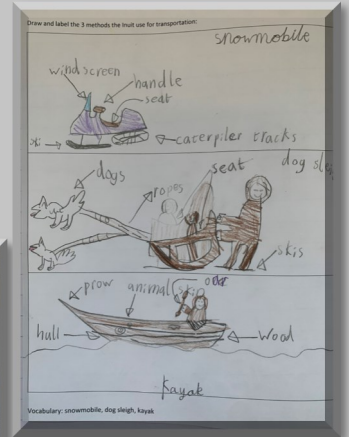 Draw and label the 3 methods the Inuit use for transportation:
snowmobile
windscreen
handle
seat
ski
caterpiler tracks
dogs
ropes
seat
dog sle
skis
prow
animal skin
oar
hull
wood
Kayak
Vocabulary: snowmobile, dog sleigh, kayak